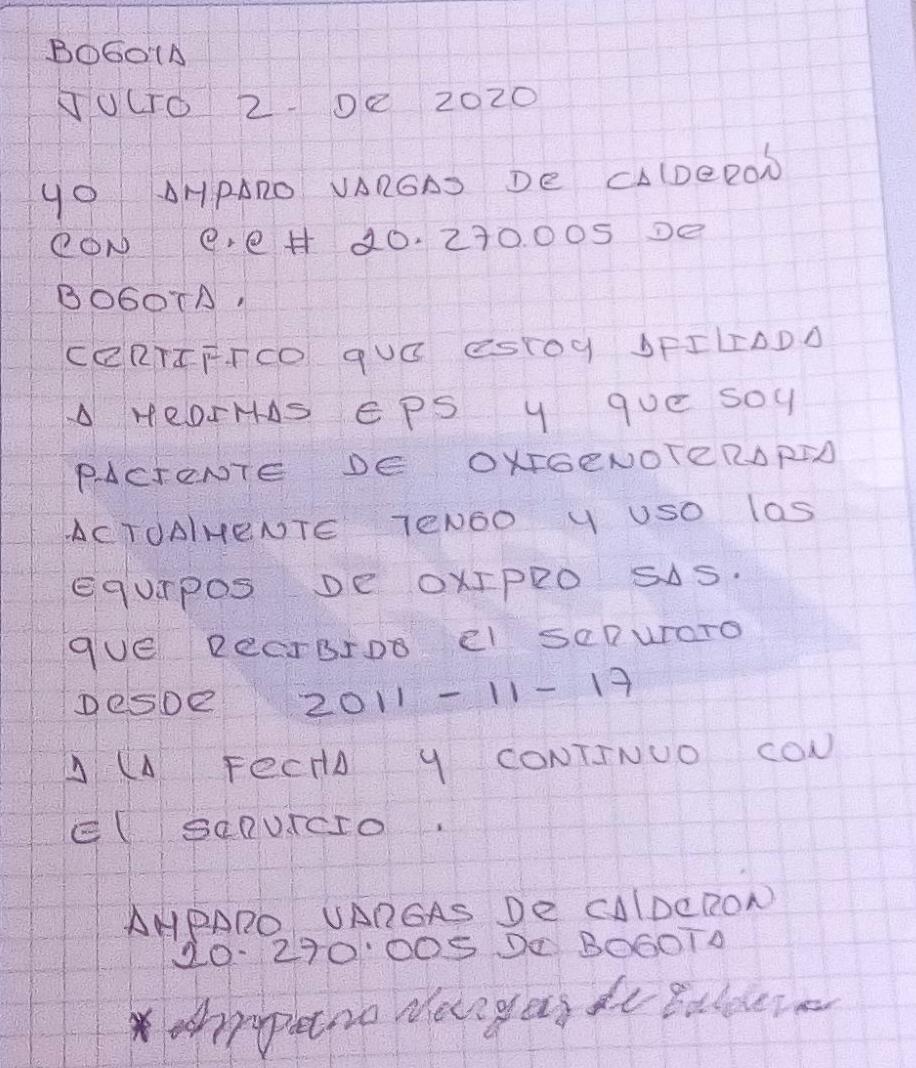 BOGOTA
JULIO 2- DE 2020
YO AMPARO VARGAS DE CALDERÓN
CON C.C # 20.270.005 DE
BOGOTA.
CERTIFICO QUE ESTOY AFILIADA
A MEDIMAS EPS Y QUE SOY
PACIENTE DE OXIGENOTERAPIA
ACTUALMENTE TENGO Y USO LOS
EQUIPOS DE OXIPRO SAS.
QUE RECIBIDO EL SERVICIO
DESDE 2011-11-17
A LA FECHA Y CONTINUO CON
EL SERVICIO.
AMPARO VARGAS DE CALDERÓN
20.270.005 DE BOGOTA
* Amparo Vargas de Calderon